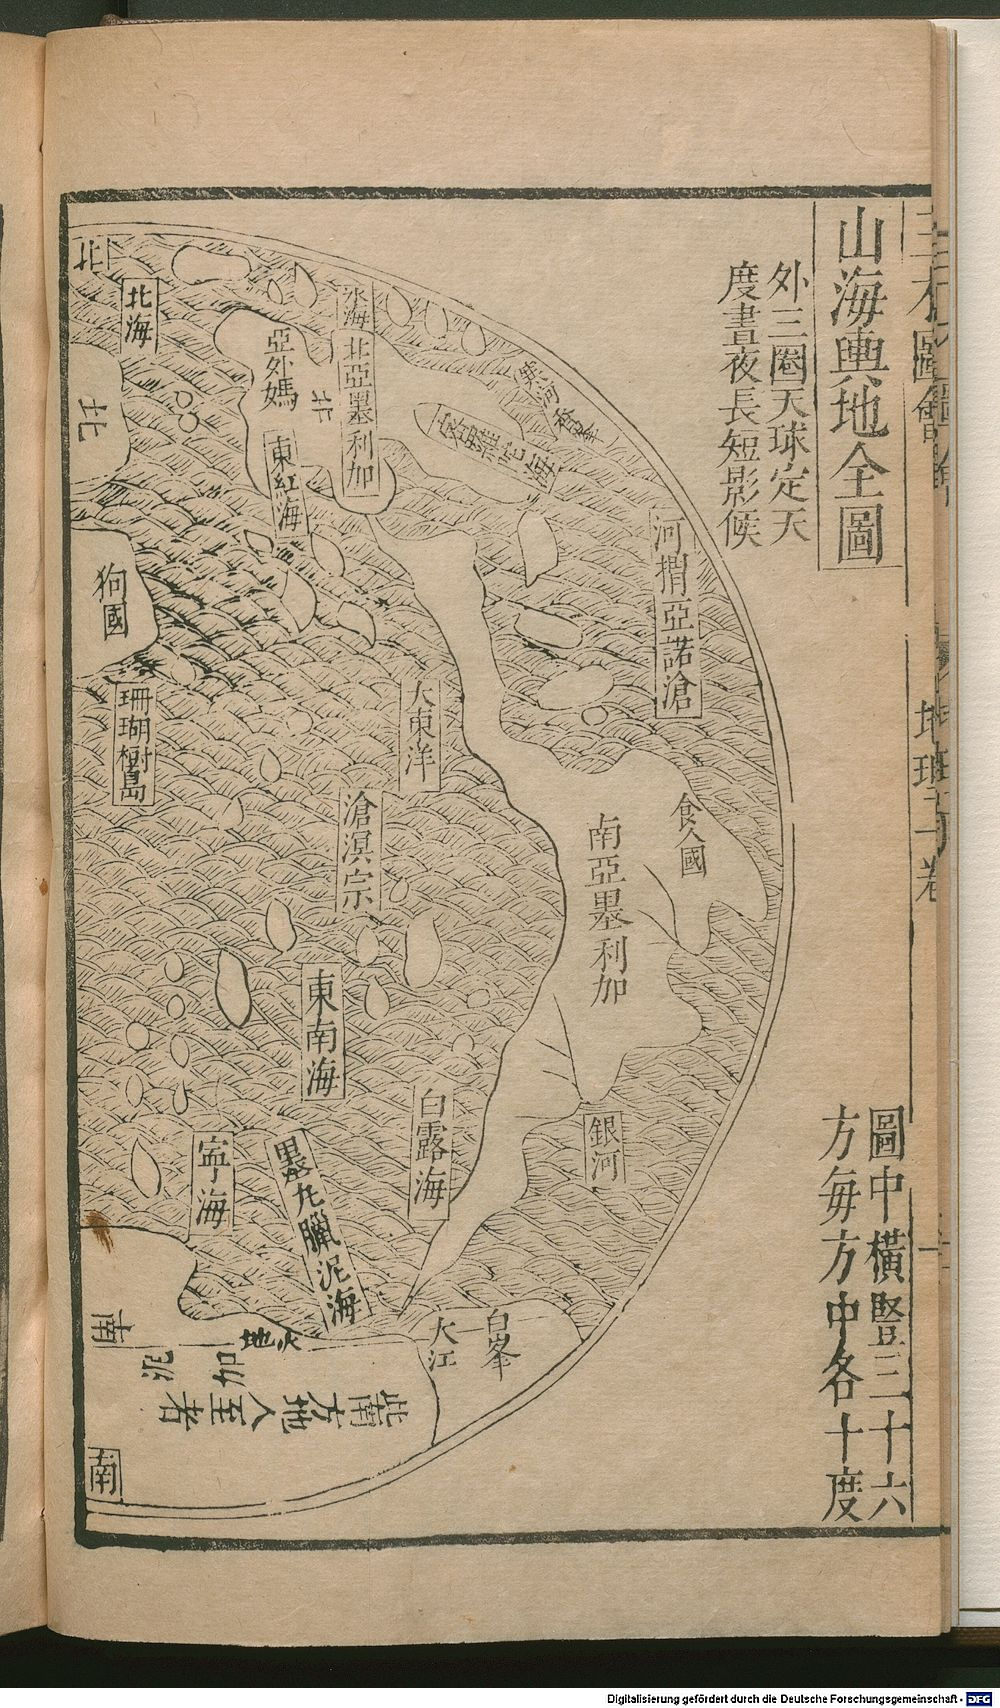 山海輿地全圖
外三圈天球定天
度晝夜長短影候
圖中橫豎三十六
方每方中各十度
地理一卷
北
北海
冰海
北亞墨利加
亞外媽
北
東紅海
北
狗國
珊瑚樹島
河摺亞諾滄
大東洋
滄溟宗
食人國
南亞墨利加
東南海
白露海
銀河
寧海
墨瓦臘泥海
白峯
大江
火地
南
泥
加
此南方地人至者
南
Digitalisierung gefördert durch die Deutsche Forschungsgemeinschaft - DFG